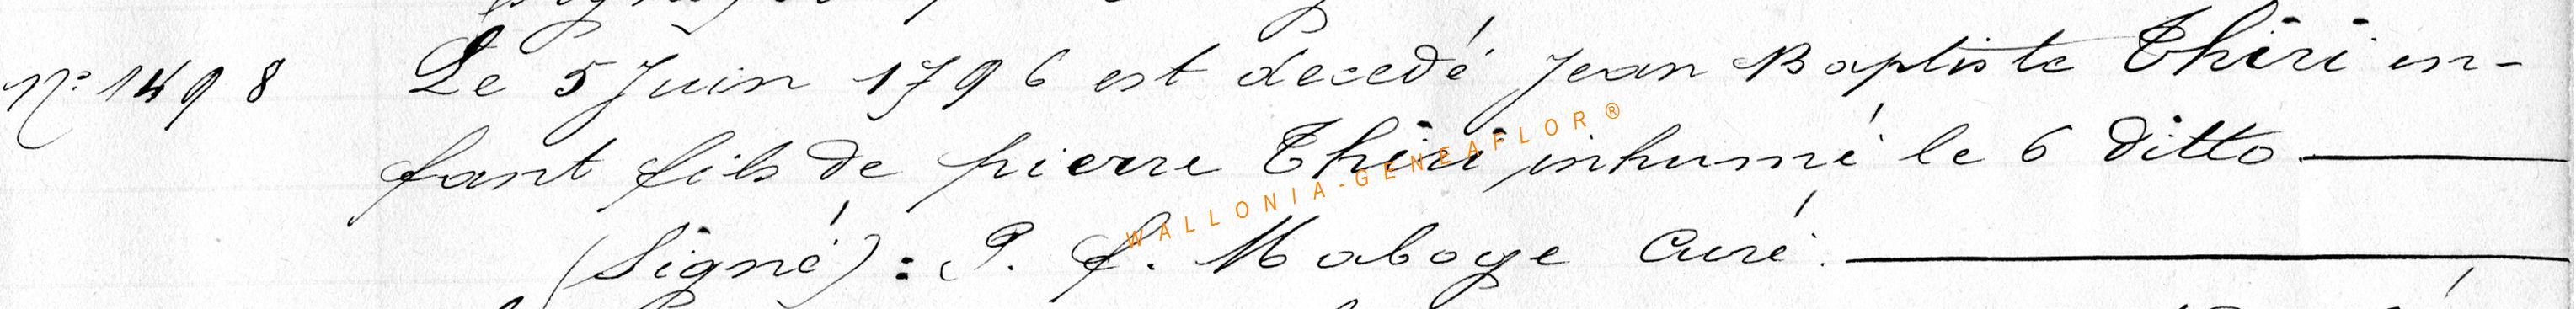 N° 1498 Le 5 Juin 1796 est decedé Jean Baptiste Thiri en-
fant fils de pierre Thiri inhumé le 6 ditto
(Signé) : P. f. Maboge Curé.
WALLONIA-GENEAFLOR ®